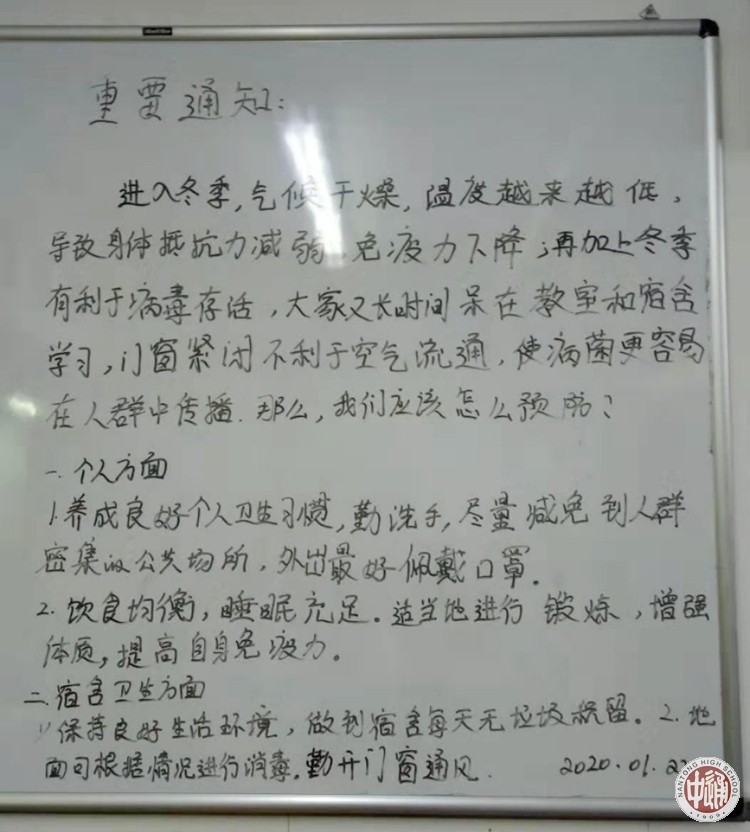 重要通知:
进入冬季,气候干燥,温度越来越低,
导致身体抵抗力减弱,免疫力下降;再加上冬季
有利于病毒存活,大家又长时间呆在教室和宿舍
学习,门窗紧闭不利于空气流通,使病菌更容易
在人群中传播.那么,我们应该怎么预防?
一.个人方面
1.养成良好个人卫生习惯,勤洗手,尽量减免到人群
密集的公共场所,外出最好佩戴口罩.
2.饮食均衡,睡眠充足.适当地进行锻炼,增强
体质,提高自身免疫力.
二.宿舍卫生方面
1.保持良好生活环境,做到宿舍每天无垃圾残留.2.地
面可根据情况进行消毒.勤开门窗通风. 2020.01.22
中通
NANTONG HIGH SCHOOL
1909